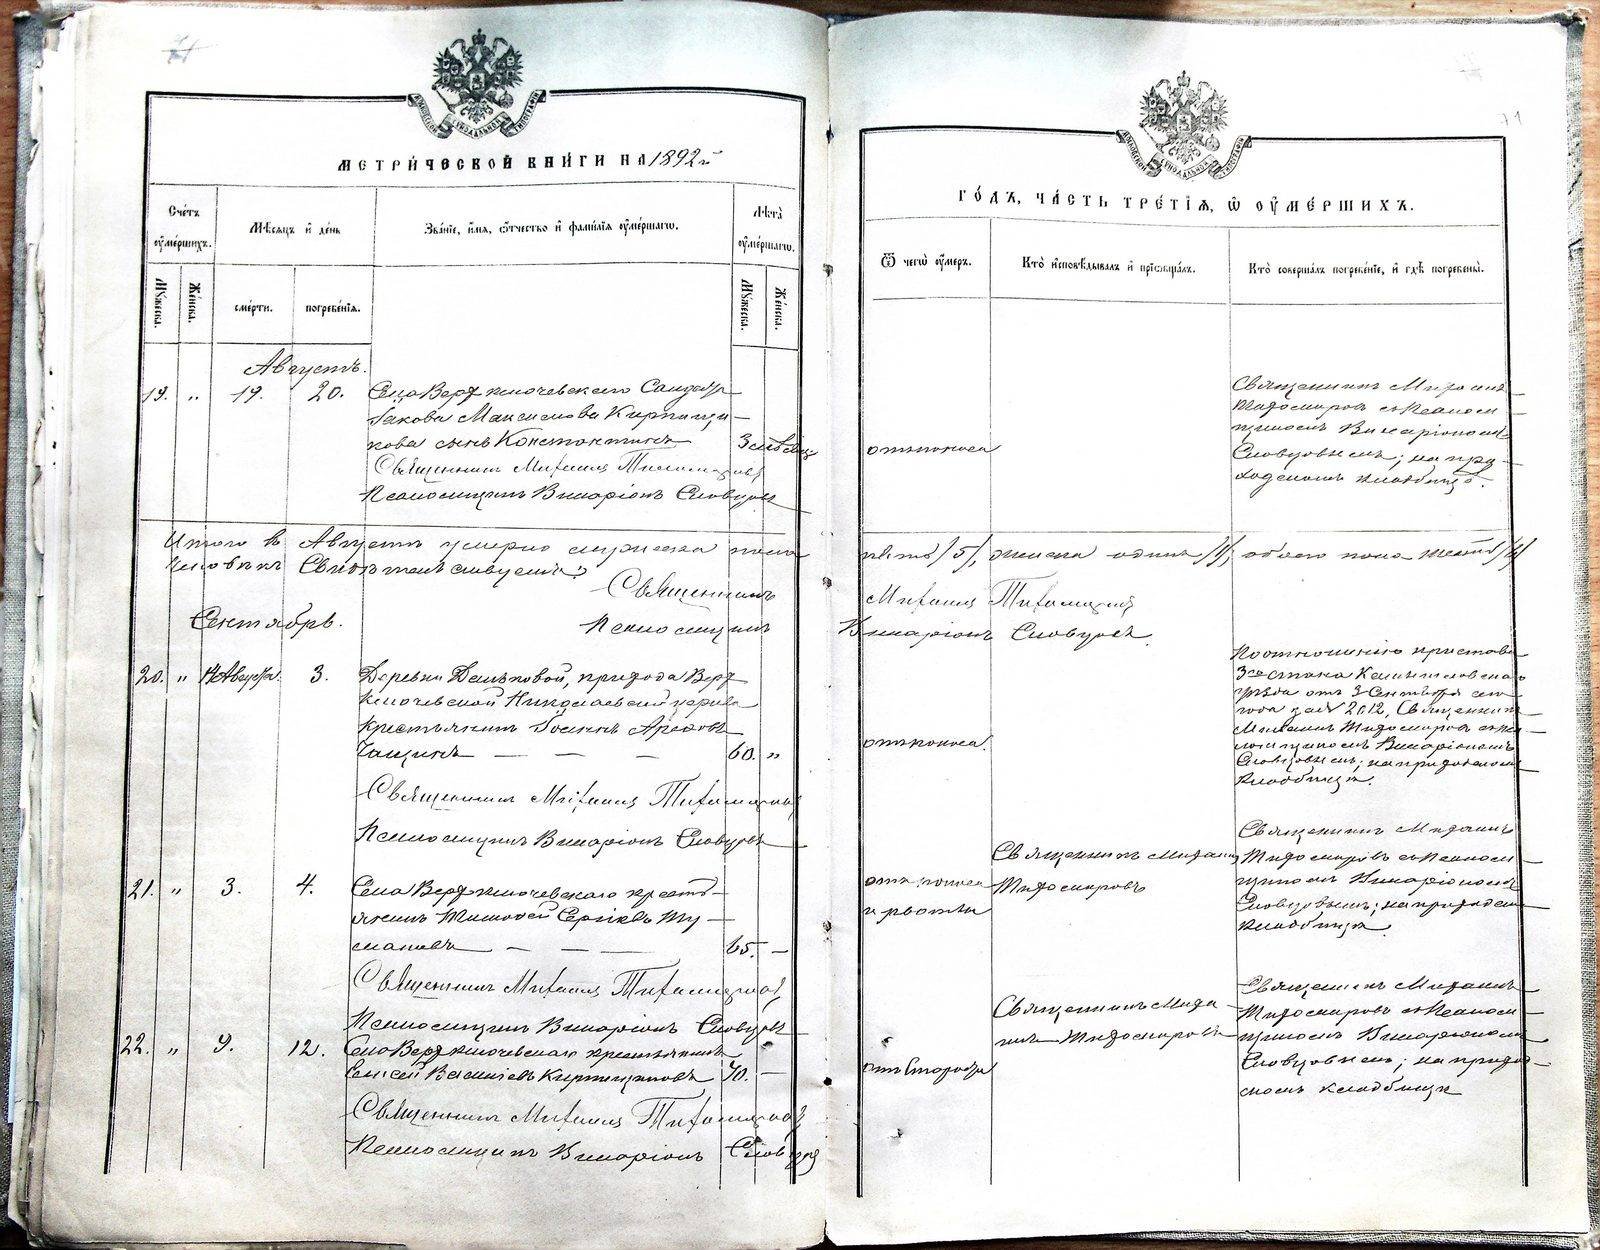 МЕТРИ́ЧЕСКОЙ КНИ́ГИ НА 1892й
Сче́тъ ᲂу҆ме́ршихъ.
Мꙋ́жеска.
Же́нска.
Мѣ́сѧцъ и҆ де́нь
сме́рти.
погребе́нїѧ.
Зва́нїе, и҆́мѧ, ѻ҆́тчество и҆ фамилїѧ ᲂу҆ме́ршагѡ.
Лѣ́та ᲂу҆ме́ршагѡ.
Мꙋ́жеска.
Же́нска.
Августъ.
19. " 19. 20. Села Верхключевскаго
Іакова Максимова Кирпищи-
кова сынъ Константинъ
Священникъ Михаилъ Тихомировъ
Псаломщикъ Виларіонъ Словцовъ
Итого въ Августѣ умерло мужеска пола
человѣкъ
Священникъ
Сентябрь.
Псаломщикъ
20. " Августа. 3. Деревни приход​а Верх
ключевской Николаевской церкви
крестьянинъ
60. "
Священникъ Михаилъ Тихомировъ
Псаломщикъ Виларіонъ Словцовъ
21. " 3. 4. Села Верхключевскаго кресть-
янинъ Тимофей Сергѣевъ Ту-
мановъ 65. -
Священникъ Михаилъ Тихомировъ
Псаломщикъ Виларіонъ Словцовъ
22. " 9. 12. Село Верхключевскаго крестьянинъ
Елисей Василіевъ Кирпищиковъ 70. -
Священникъ Михаилъ Тихомировъ
Псаломщикъ Виларіонъ Словцовъ
71
ГО́ДЪ, ЧА́СТЬ ТРЕ́ТІѦ, Ѡ҆ ОУ҆МЕ́РШИХЪ.
Ѿ чегѡ̀ ᲂу҆́меръ.
Кто̀ и҆сповѣ́дывалъ и҆ прїѡбща́лъ.
Кто̀ соверша́лъ погребе́нїе, и҆ гдѣ̀ погребены̀.
отъ поноса
Священникъ Михаилъ
Тихомировъ съ псалом
щикомъ Виларіономъ
Словцовымъ; на при-
ходскомъ кладбищѣ.
пять /5/, женска одинъ /1/, обоего пола шесть /6/
Михаилъ Тихомировъ
Виларіонъ Словцовъ
отъ поноса.
По отношенію пристава
3го стана Камышловскаго
уѣзда отъ 3 Сентября сего
года за № 2012, Священникъ
Михаилъ Тихомировъ съ пса
ломщикомъ Виларіономъ
Словцовымъ; на приходскомъ
кладбищѣ.
отъ поноса
и рвоты
Священникъ Михаилъ
Тихомировъ
Священникъ Михаилъ
Тихомировъ съ псалом
щикомъ Виларіономъ
Словцовымъ; на приходском
кладбищѣ.
отъ старости
Священникъ Миха
илъ Тихомировъ
Священникъ Михаилъ
Тихомировъ съ псалом
щикомъ Виларіономъ
Словцовымъ; на приход
скомъ кладбищѣ